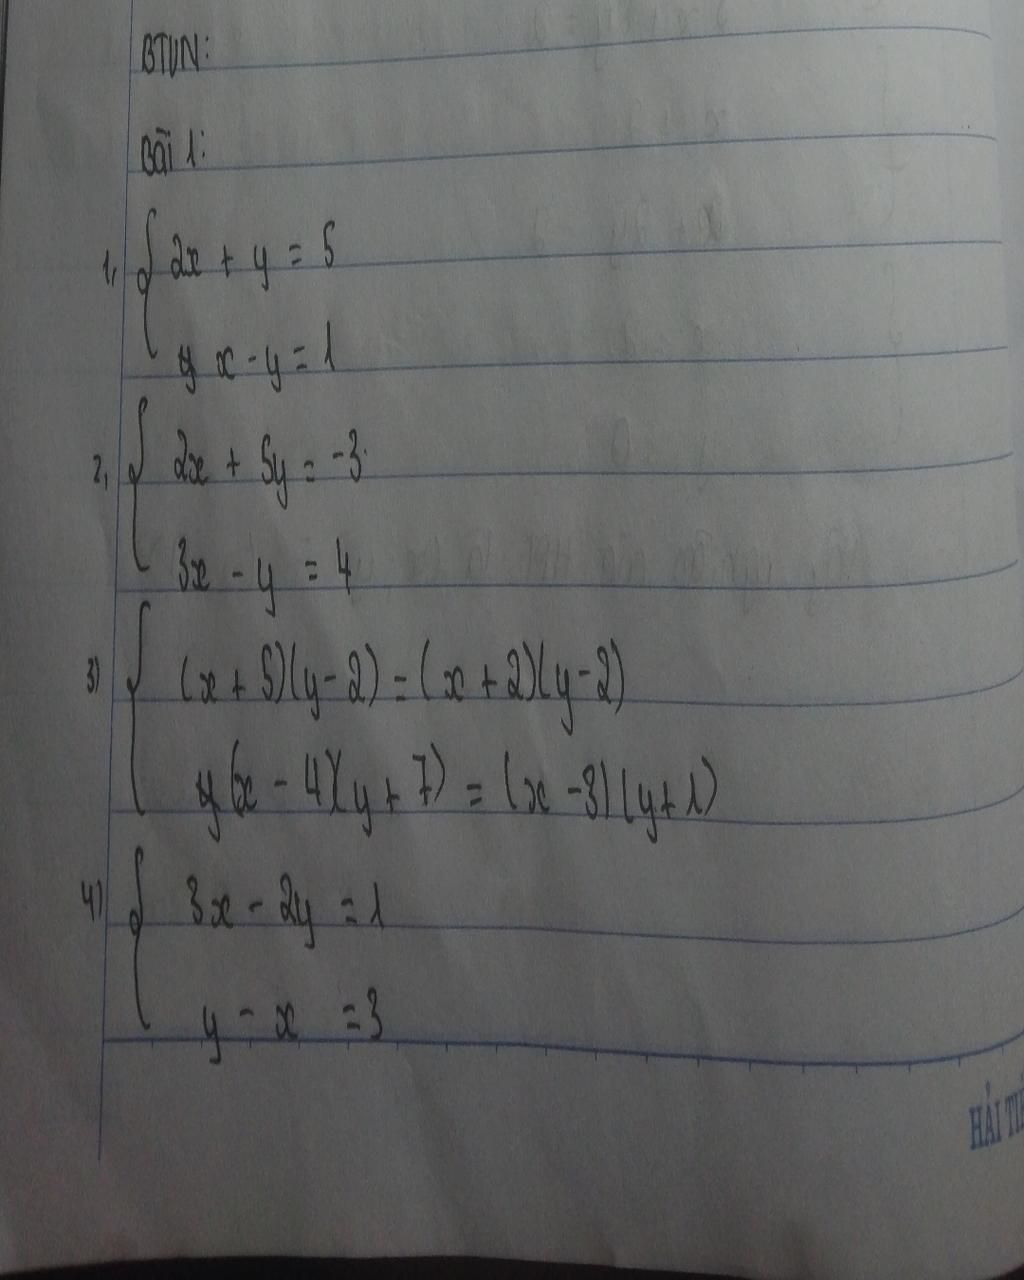 BTVN:
Bài 1:
1, 2x + y = 5
x - y = 1
2, 2x + 5y = -3
3x - y = 4
3) (x + 5)(y - 2) = (x + 2)(y - 2)
(x - 4)(y + 7) = (x - 3)(y + 1)
4) 3x - 2y = 1
y - x = 3
HẢI TI